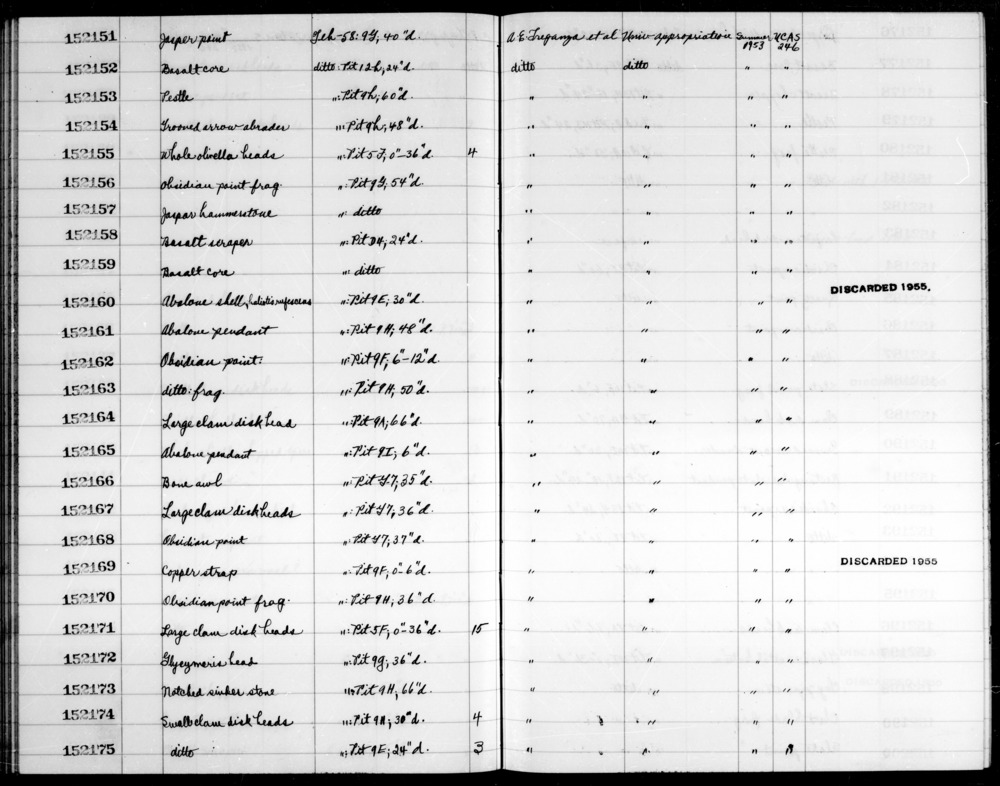 152151 Jasper point Teh-58: 9g, 40"d. A E Treganza et al Univ appropriation Summer 1953 UCAS 246
152152 Basalt core ditto: Pit 12h, 24"d. ditto ditto " "
152153 Pestle ": Pit 9h, 60"d. " " " "
152154 Grooved arrow abrader ": Pit 9h, 48"d. " " " "
152155 Whole olivella beads ": Pit 5F, 0"-36"d. 4 " " " "
152156 Obsidian point frag. ": Pit 9g, 54"d. " " " "
152157 Jaspar hammerstone ": ditto " " " "
152158 Basalt scraper ": Pit 24"d. " " " "
152159 Basalt core ": ditto " " " "
152160 Abalone shell, haliotis rufescens ": Pit 9E, 30"d. " " " " DISCARDED 1955.
152161 Abalone pendant ": Pit 9H, 48"d. " " " "
152162 Obsidian point. ": Pit 9F, 6"-12"d. " " " "
152163 ditto: frag. ": Pit 9H, 50"d. " " " "
152164 Large clam disk bead ": Pit 9A, 66"d. " " " "
152165 Abalone pendant ": Pit 9I, 6"d. " " " "
152166 Bone awl ": Pit Y7, 35"d. " " " "
152167 Large clam disk beads ": Pit Y7, 36"d. " " " "
152168 Obsidian point ": Pit Y7, 37"d. " " " "
152169 Copper strap ": Pit 9F, 0"-6"d. " " " " DISCARDED 1955
152170 Obsidian point frag. ": Pit 9H, 36"d. " " " "
152171 Large clam disk beads ": Pit 5F, 0"-36"d. 15 " " " "
152172 Glycymeris bead ": Pit 9g, 36"d. " " " "
152173 Notched sinker stone ": Pit 9H, 66"d. " " " "
152174 Small clam disk beads ": Pit 9H, 30"d. 4 " " " "
152175 ditto ": Pit 9E, 24"d. 3 " " " "